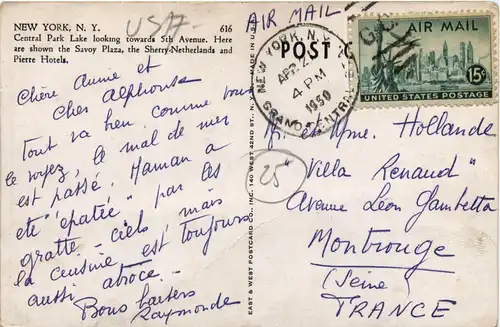 NEW YORK, N. Y. 616
Central Park Lake looking towards 5th Avenue. Here
are shown the Savoy Plaza, the Sherry-Netherlands and
Pierre Hotels.
USA
AIR MAIL
Chère Annie et
Cher Alphonse
Tout va bien comme vous
le voyez, le mal de mer
est passé. Maman a
été "épatée" par les
gratte-ciels, mais
la cuisine est toujours
aussi atroce.
Bons baisers
Raymonde
EAST & WEST POSTCARD CO., INC. 140 WEST 42ND ST., N.Y. MADE IN U.S.A.
POST C
NEW YORK, N.Y.
APR 2
4 PM
1950
GRAND CENTRAL
AIR MAIL
15¢
UNITED STATES POSTAGE
25
M. et Mme. Hollande
"Villa Renaud"
Avenue Léon Gambetta
Montrouge
(Seine)
FRANCE